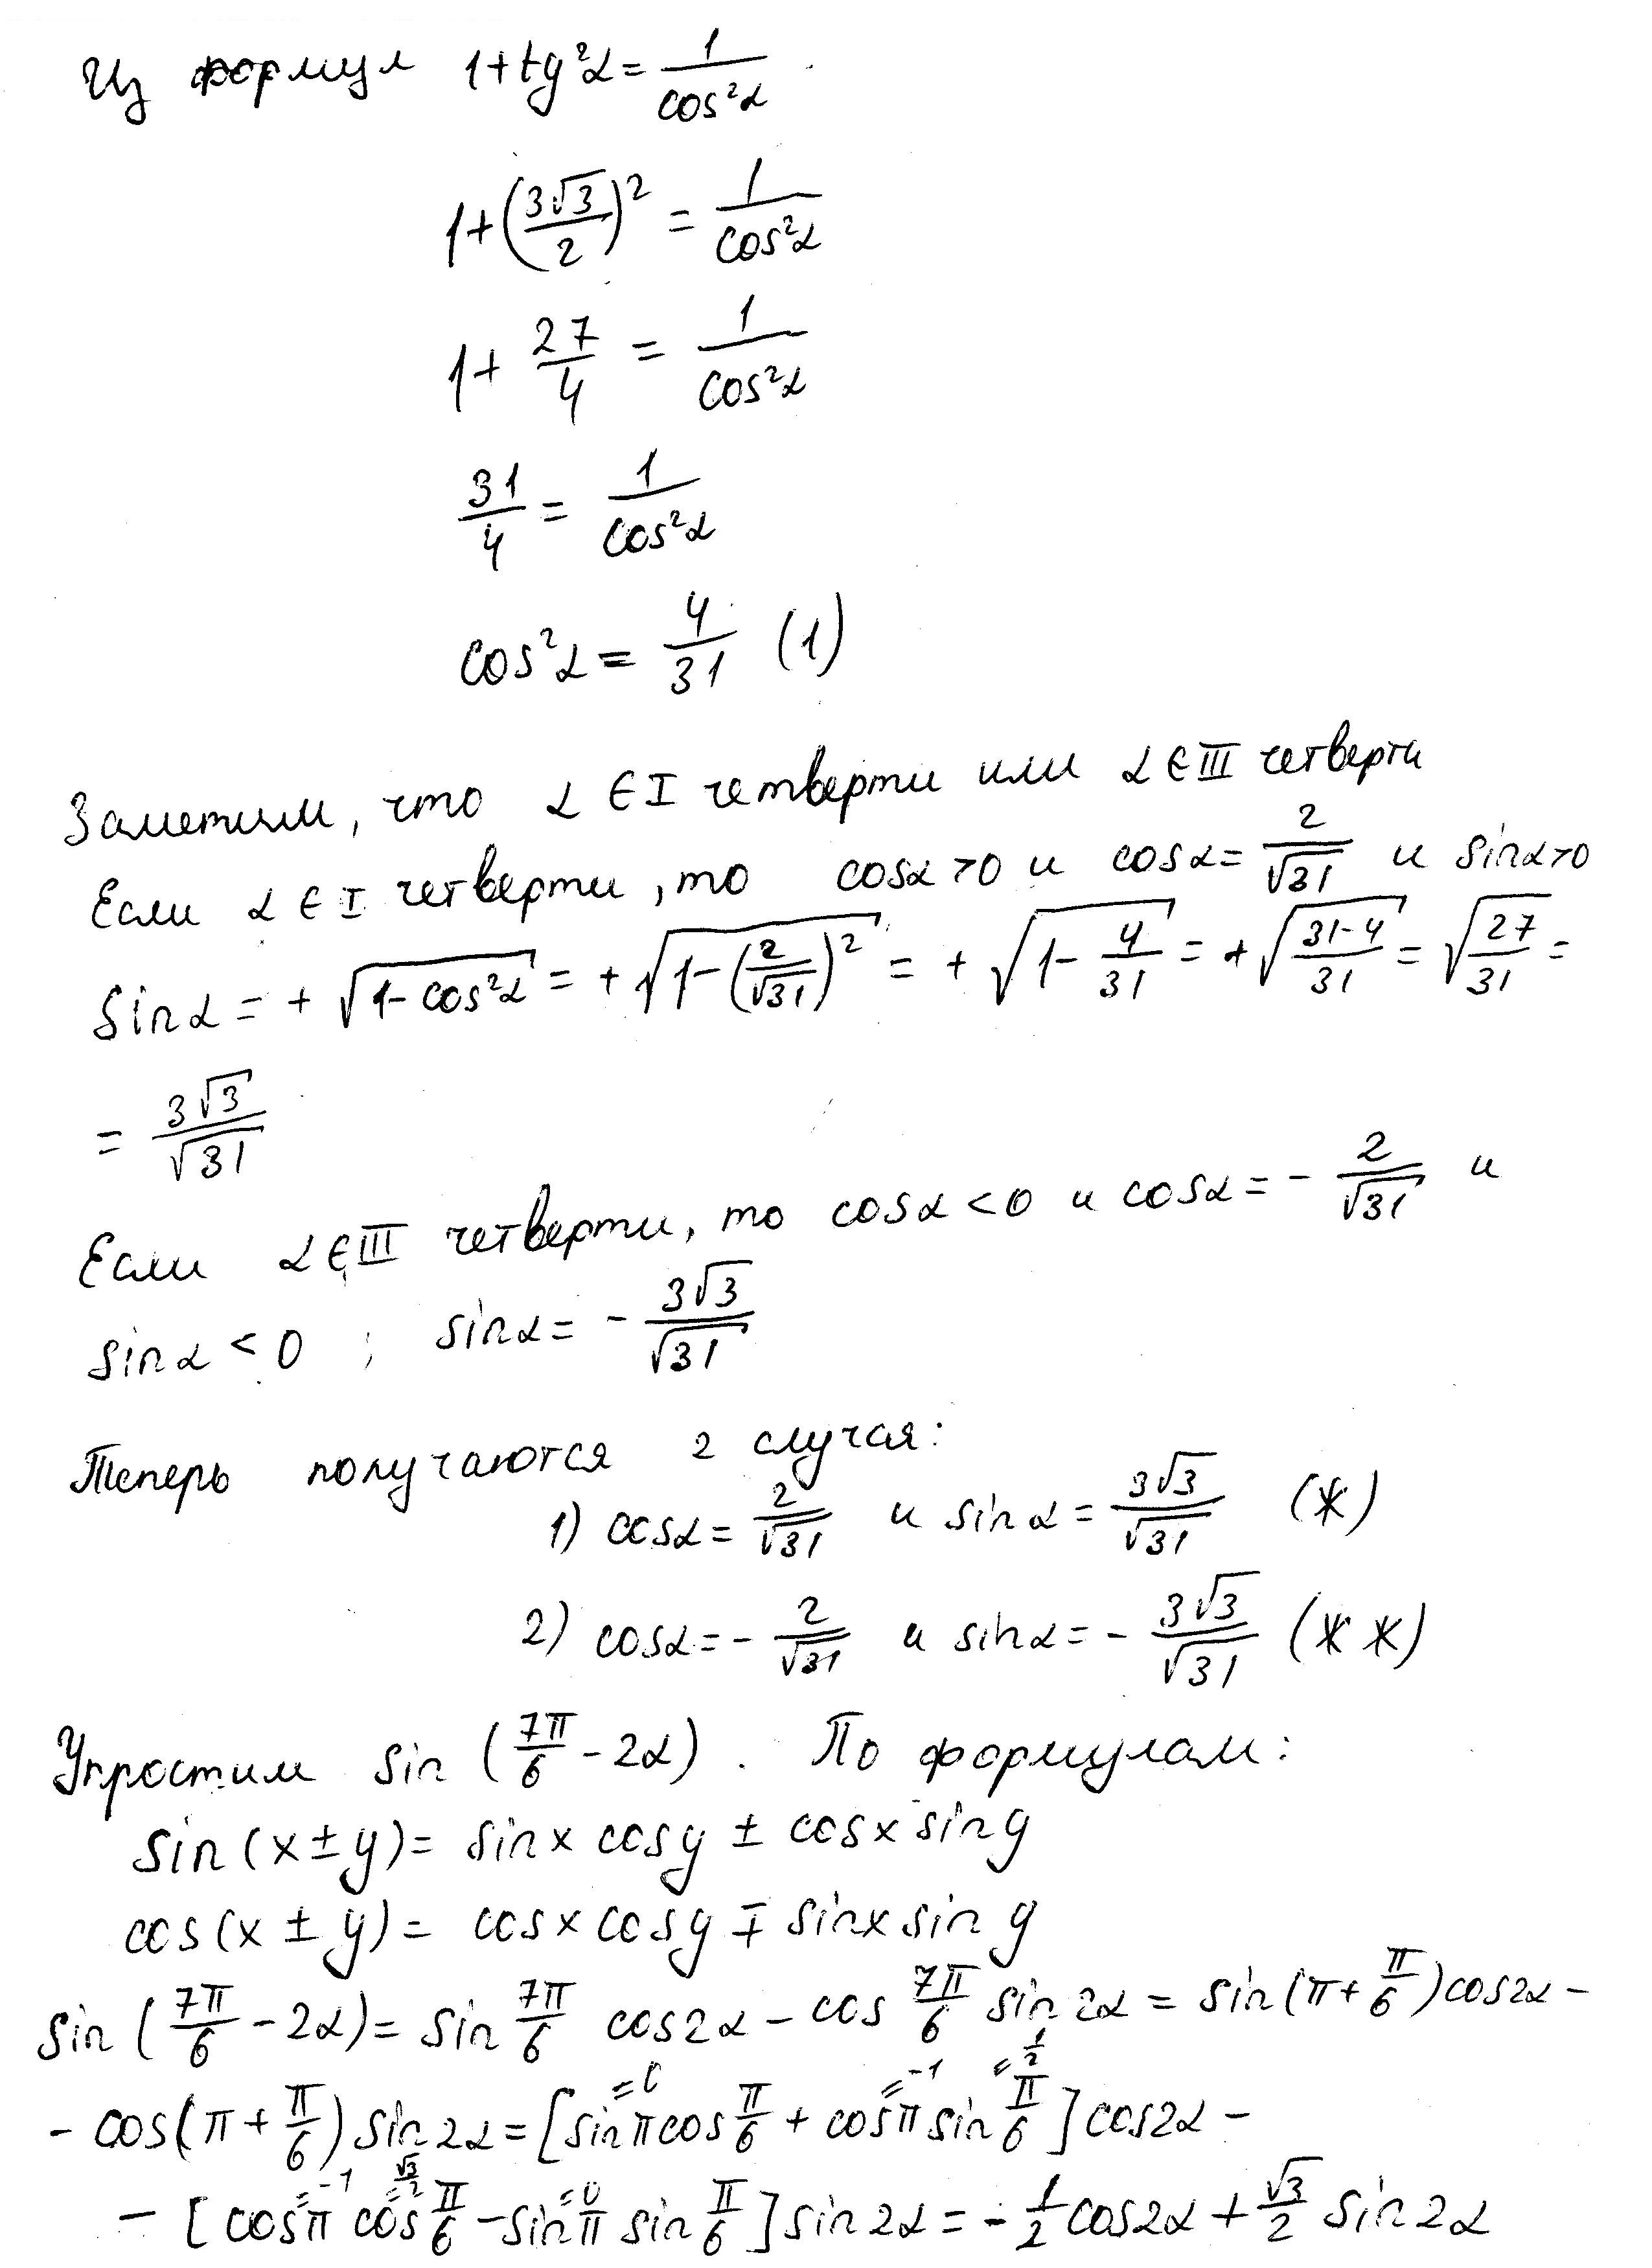 Из формул 1+tg²α = 1/cos²α
1+(3√3/2)² = 1/cos²α
1+ 27/4 = 1/cos²α
31/4 = 1/cos²α
cos²α = 4/31 (1)
Заметим, что α ∈ I четверти или α ∈ III четверти
Если α ∈ I четверти, то cosα>0 и cosα= 2/√31 и sinα>0
sinα = + √(1-cos²α) = + √(1-(2/√31)²) = + √(1- 4/31) = + √((31-4)/31) = √(27/31) =
= 3√3/√31
Если α ∈ III четверти, то cosα<0 и cosα= - 2/√31 и
sinα < 0 ; sinα = - 3√3/√31
Теперь получаются 2 случая:
1) cosα= 2/√31 и sinα = 3√3/√31 (*)
2) cosα= - 2/√31 и sinα= - 3√3/√31 (* *)
Упростим sin (7π/6 - 2α) . По формулам:
sin(x±y)= sinx cosy ± cosx siny
cos(x ± y)= cosx cosy ∓ sinx siny
sin (7π/6 - 2α)= sin 7π/6 cos2α - cos 7π/6 sin2α = sin(π+ π/6)cos2α -
=0 =-1 =1/2
- cos(π + π/6) sin2α = [sinπ cos π/6 + cosπ sin π/6] cos2α -
=-1 =√3/2 =0
- [cosπ cos π/6 - sinπ sin π/6] sin2α = - 1/2 cos2α + √3/2 sin2α